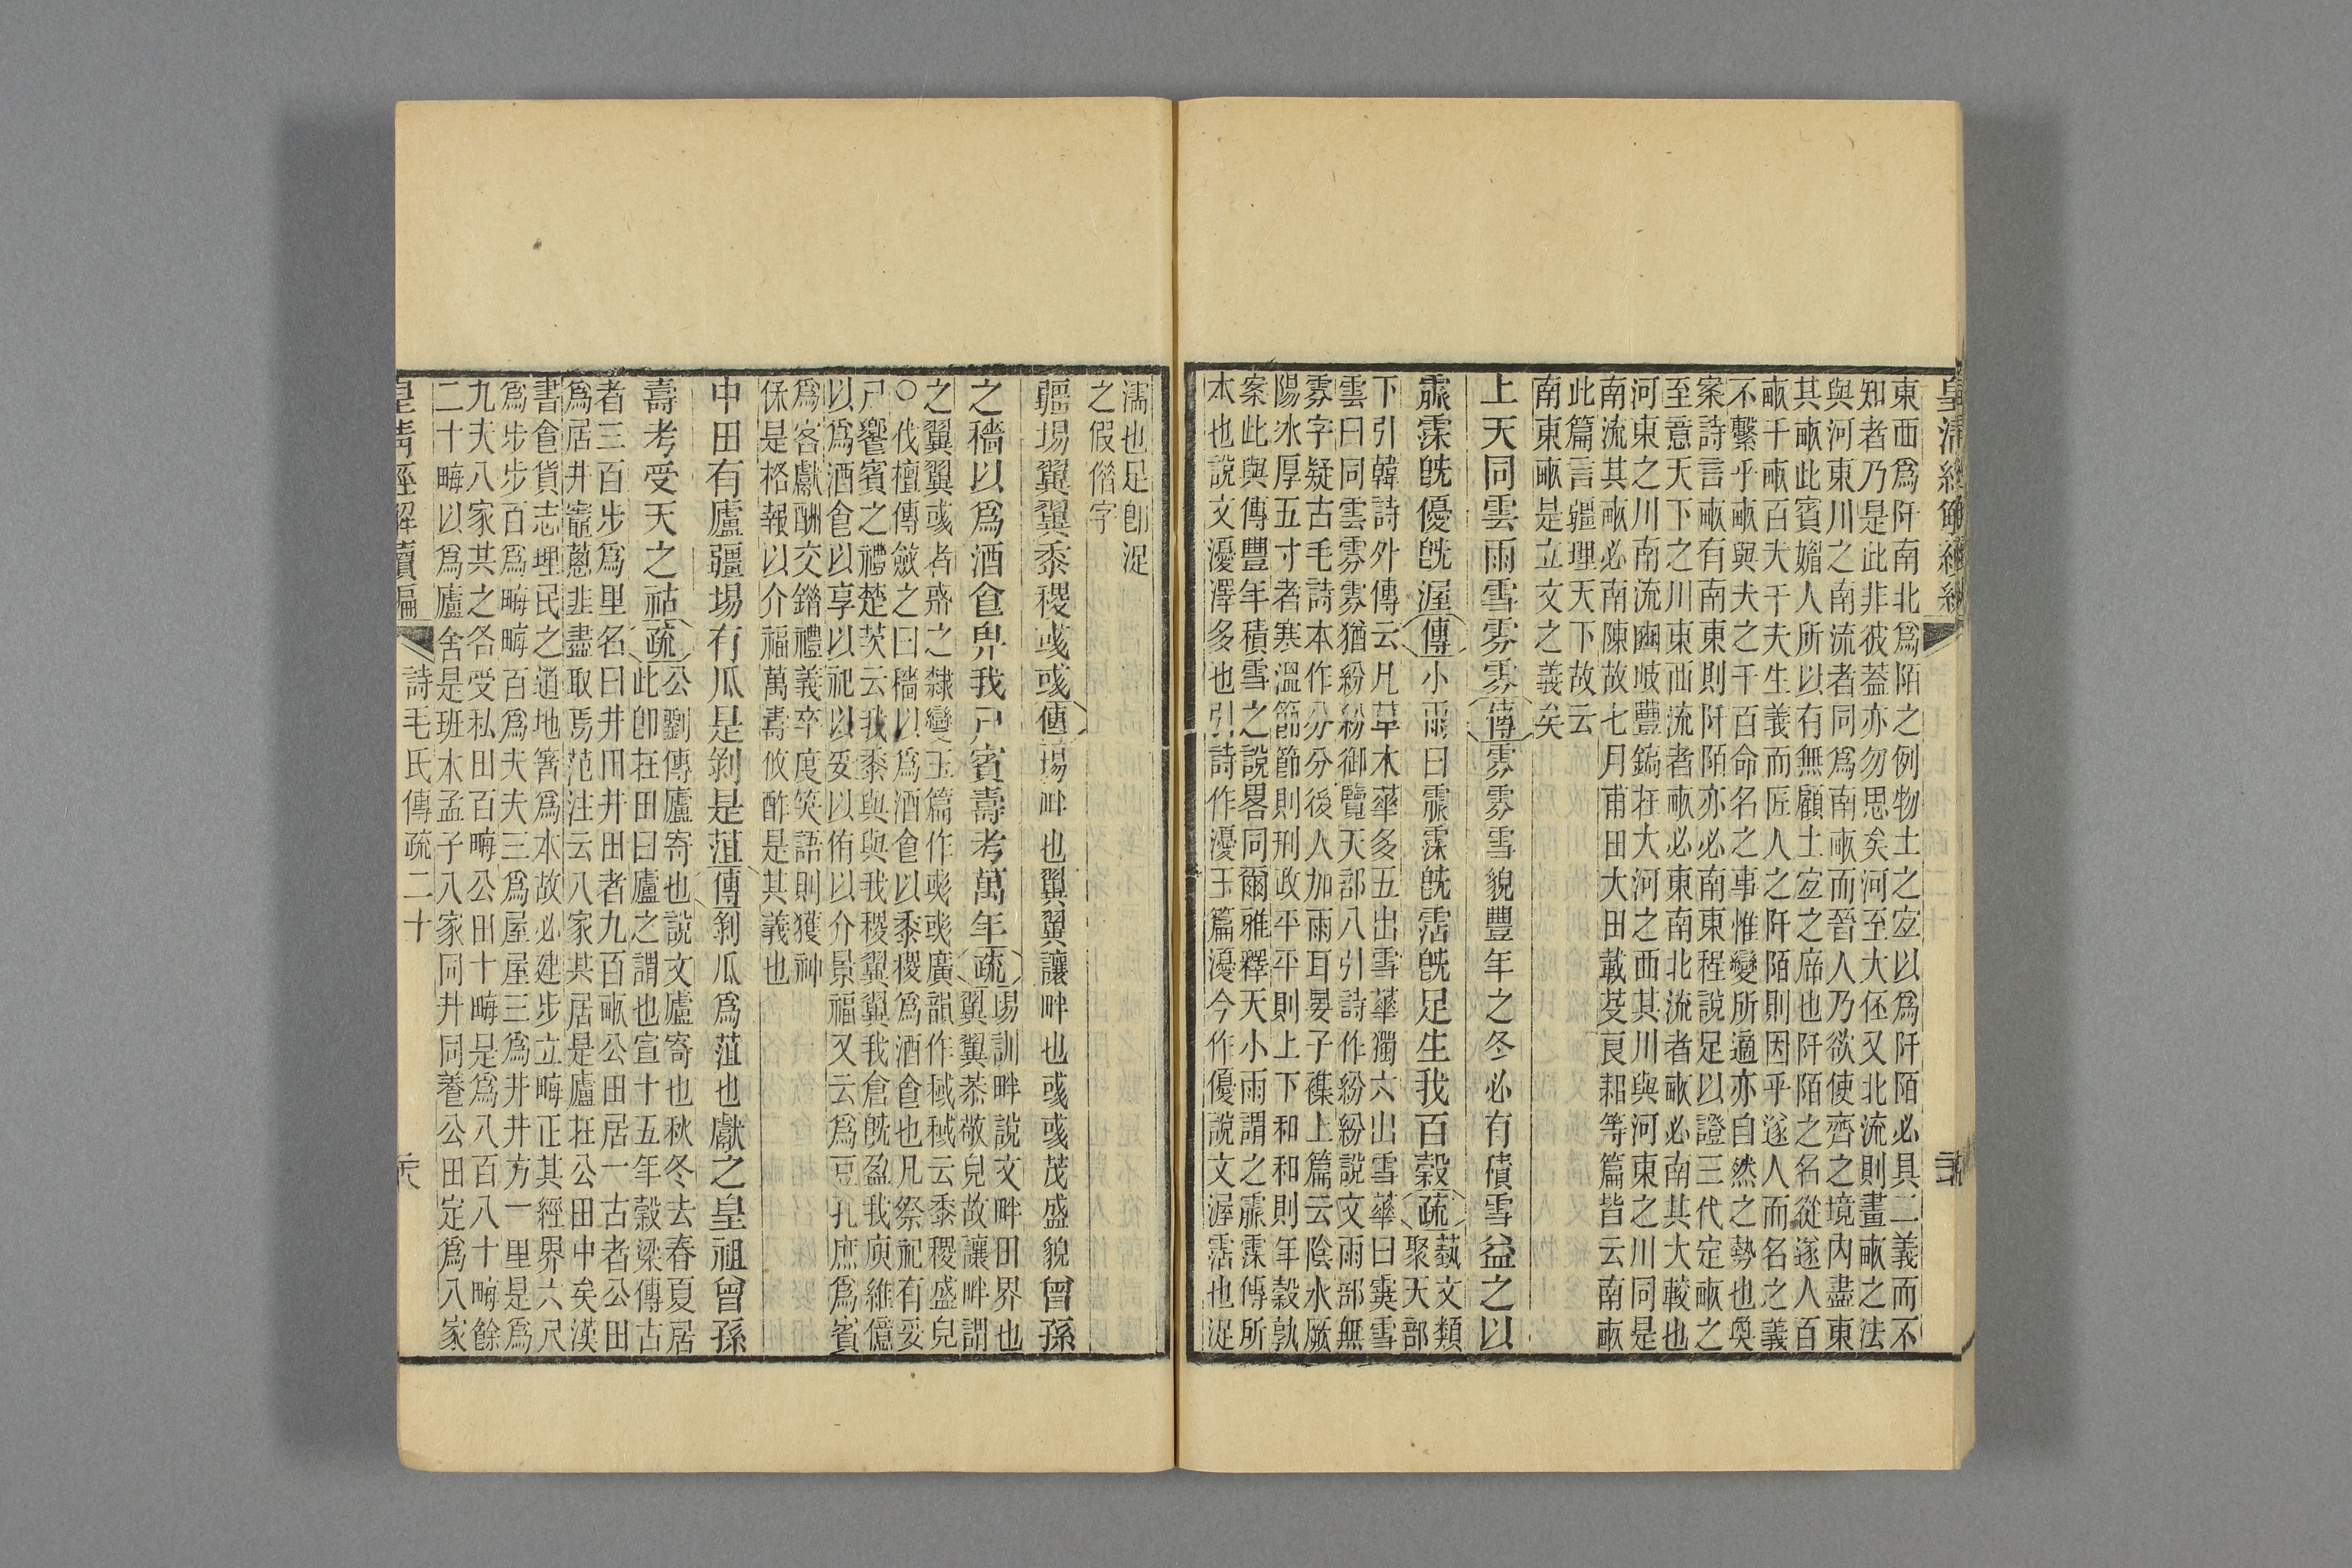 東西爲阡南北爲陌之例物土之宐以爲阡陌必具二義而不
知者乃是此非彼葢亦勿思矣河至大伾又北流則畫畝之法
與河東川之南流者同爲南畝而晉人乃欲使齊之境內盡東
其畝此賓媚人所以有無顧土宐之席也阡陌之名從遂人百
畝千畝百夫千夫生義而匠人之阡陌則因乎遂人而名之義
不繫乎畝與夫之千百命名之事惟變所適亦自然之勢也奐
案詩言畝有南東則阡陌亦必南東程說足以證三代定畝之
至意天下之川東西流者畝必東南北流者畝必南其大較也
河東之川南流豳岐豐鎬在大河之西其川與河東之川同是
南流其畝必南陳故七月甫田大田載芟良耜等篇皆云南畝
此篇言疆理天下故云
南東畝是立文之義矣
上天同雲雨雪雰雰傳雰雰雪貌豐年之冬必有積雪益之以
霢霂旣優旣渥傳小雨曰霢霂旣霑旣足生我百穀疏藝文類
聚天部
下引韓詩外傳云凡草木華多五出雪華獨六出雪華曰霙雪
雲曰同雲雰雰猶紛紛御覽天部八引詩作紛紛說文雨部無
雰字疑古毛詩本作分分後人加雨耳晏子襍上篇云陰水厥
陽冰厚五寸者寒溫節節則刑政平平則上下和和則年穀孰
案此與傳豐年積雪之說畧同爾雅釋天小雨謂之霢霂傳所
本也說文瀀澤多也引詩作瀀玉篇瀀今作優說文渥霑也浞
濡也足卽浞
之假借字
疆埸翼翼黍稷彧彧傳埸畔也翼翼讓畔也彧彧茂盛貌曾孫
之穡以爲酒食畀我尸賓壽考萬年疏埸訓畔說文畔田界也
翼翼恭敬皃故讓畔謂
之翼翼彧者𢒰之隸變玉篇作彧彧廣韻作稢稢云黍稷盛皃
○伐檀傳斂之曰穡以爲酒食以黍稷爲酒食也凡祭祀有妥
尸饗賓之禮楚茨云我黍與與我稷翼翼我倉旣盈我庾維億
以爲酒食以享以祀以妥以侑以介景福又云爲豆孔庶爲賓
爲客獻酬交錯禮義卒度笑語則獲神
保是格報以介福萬壽攸酢是其義也
中田有廬疆埸有瓜是剝是菹傳剝瓜爲菹也獻之皇祖曾孫
壽考受天之祜疏公劉傳廬寄也說文廬寄也秋冬去春夏居
此卽在田曰廬之謂也宣十五年穀梁傳古
者三百步爲里名曰井田井田者九百畝公田居一古者公田
爲居井竈蔥韭盡取焉范注云八家共居是廬在公田中矣漢
書食貨志理民之道地箸爲本故必建步立畮正其經界六尺
爲步步百爲畮畮百爲夫夫三爲屋屋三爲井井方一里是爲
九夫八家共之各受私田百畮公田十畮是爲八百八十畮餘
二十畮以爲廬舍是班本孟子八家同井同養公田定爲八家
皇清經解續編 詩毛氏傳疏二十